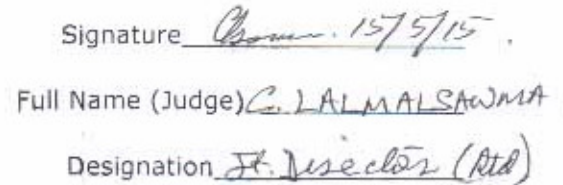 Signature 15/5/15.
Full Name (Judge) C. LALMALSAWMA
Designation Jt. Director (Rtd)